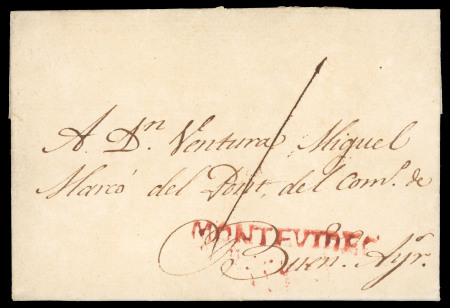 A Dn. Ventura Miguel
Marcó del Pont, del Com.o de
MONTEVIDEO
Buen.s Ayr.s